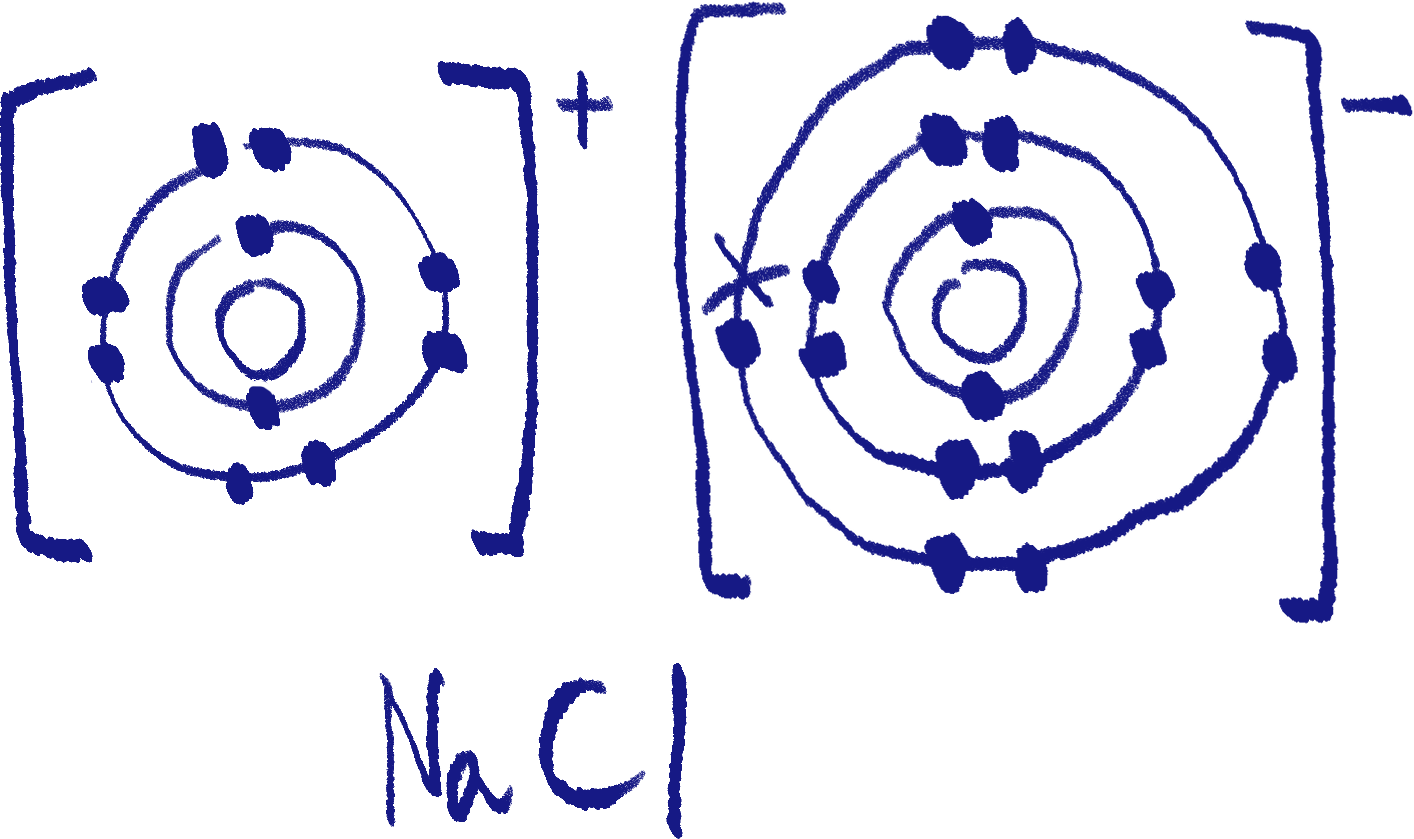 + −
NaCl